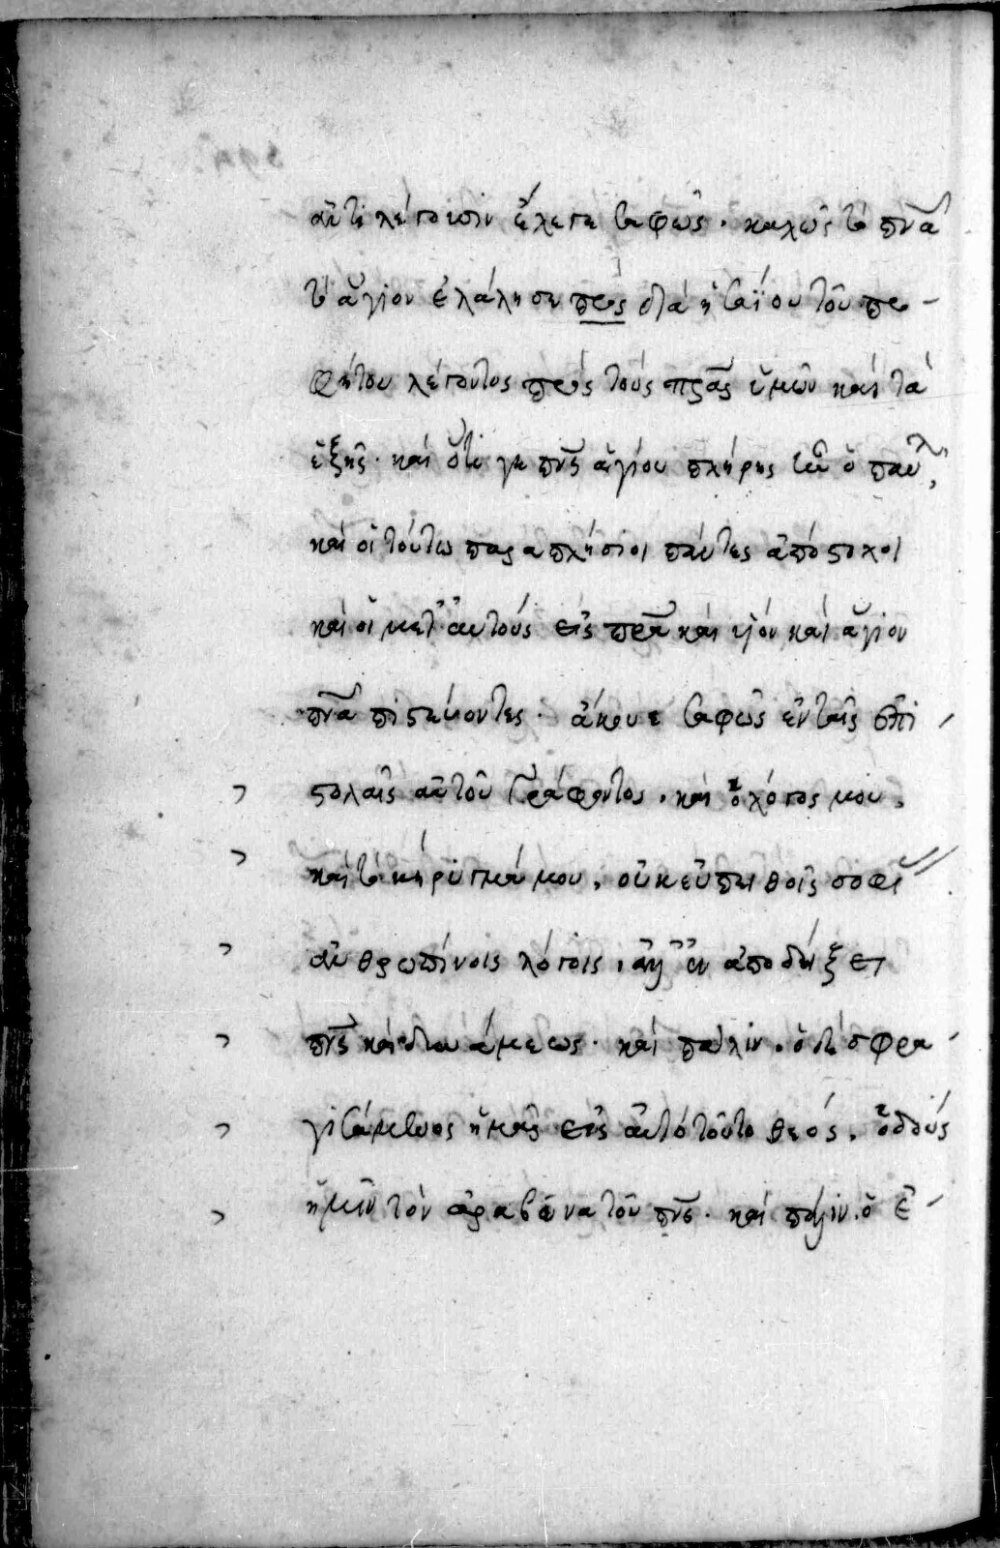 ἀντιλέγουσιν ἔλεγε σαφῶς· καλῶς τὸ πνᾶ
τὸ ἅγιον ἐλάλησεν πρὸς διὰ ἡσαΐου τοῦ προ-
φήτου λέγοντος πρὸς τοὺς πρας ὑμῶν καὶ τὰ
ἑξῆς· καὶ ὅτι γε πνς ἁγίου πλήρης ἦν ὁ παῦλ,
καὶ οἱ τούτω παραπλήσιοι πάντες ἀπόστολοι
καὶ οἱ μετ' αὐτοὺς εἰς πρα καὶ υἱὸν καὶ ἅγιον
πνα πιστεύοντες· ἄκουε σαφῶς ἐν ταῖς ἐπι-
στολαῖς αὐτοῦ γράφοντος· καὶ ὁ λόγος μου,
καὶ τὸ κήρυγμά μου, οὐκ ἐν πειθοῖς σοφί
ἀνθρωπίνοις λόγοις, ἀλλ' ἐν ἀποδείξει
πνς καὶ δυνάμεως· καὶ πάλιν, ὁ δὲ σφρα-
γισάμενος ἡμᾶς εἰς αὐτὸ τοῦτο θεός, ὁ δοὺς
ἡμῖν τὸν ἀραβῶνα τοῦ πνς· καὶ πάλιν, ὁ ἐ-